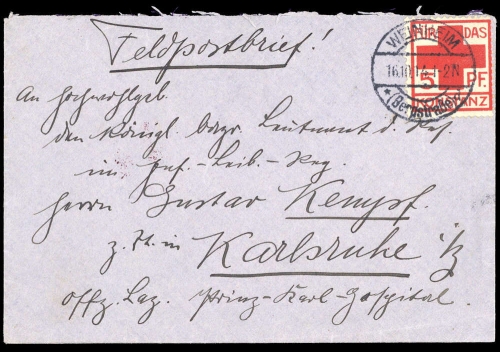 Feldpostbrief!
FÜR DAS
5 PF.
WEINHEIM
16.10.14.1-2N
* (Bergstraße)
An Hochwohlgeb.
den Königl. bayr. Leutnant d. Res.
im Inf.-Leib-Reg.
Herrn Gustav Kempf.
z. Zt. in Karlsruhe i/B
Offz. Laz. Prinz-Karl-Hospital.